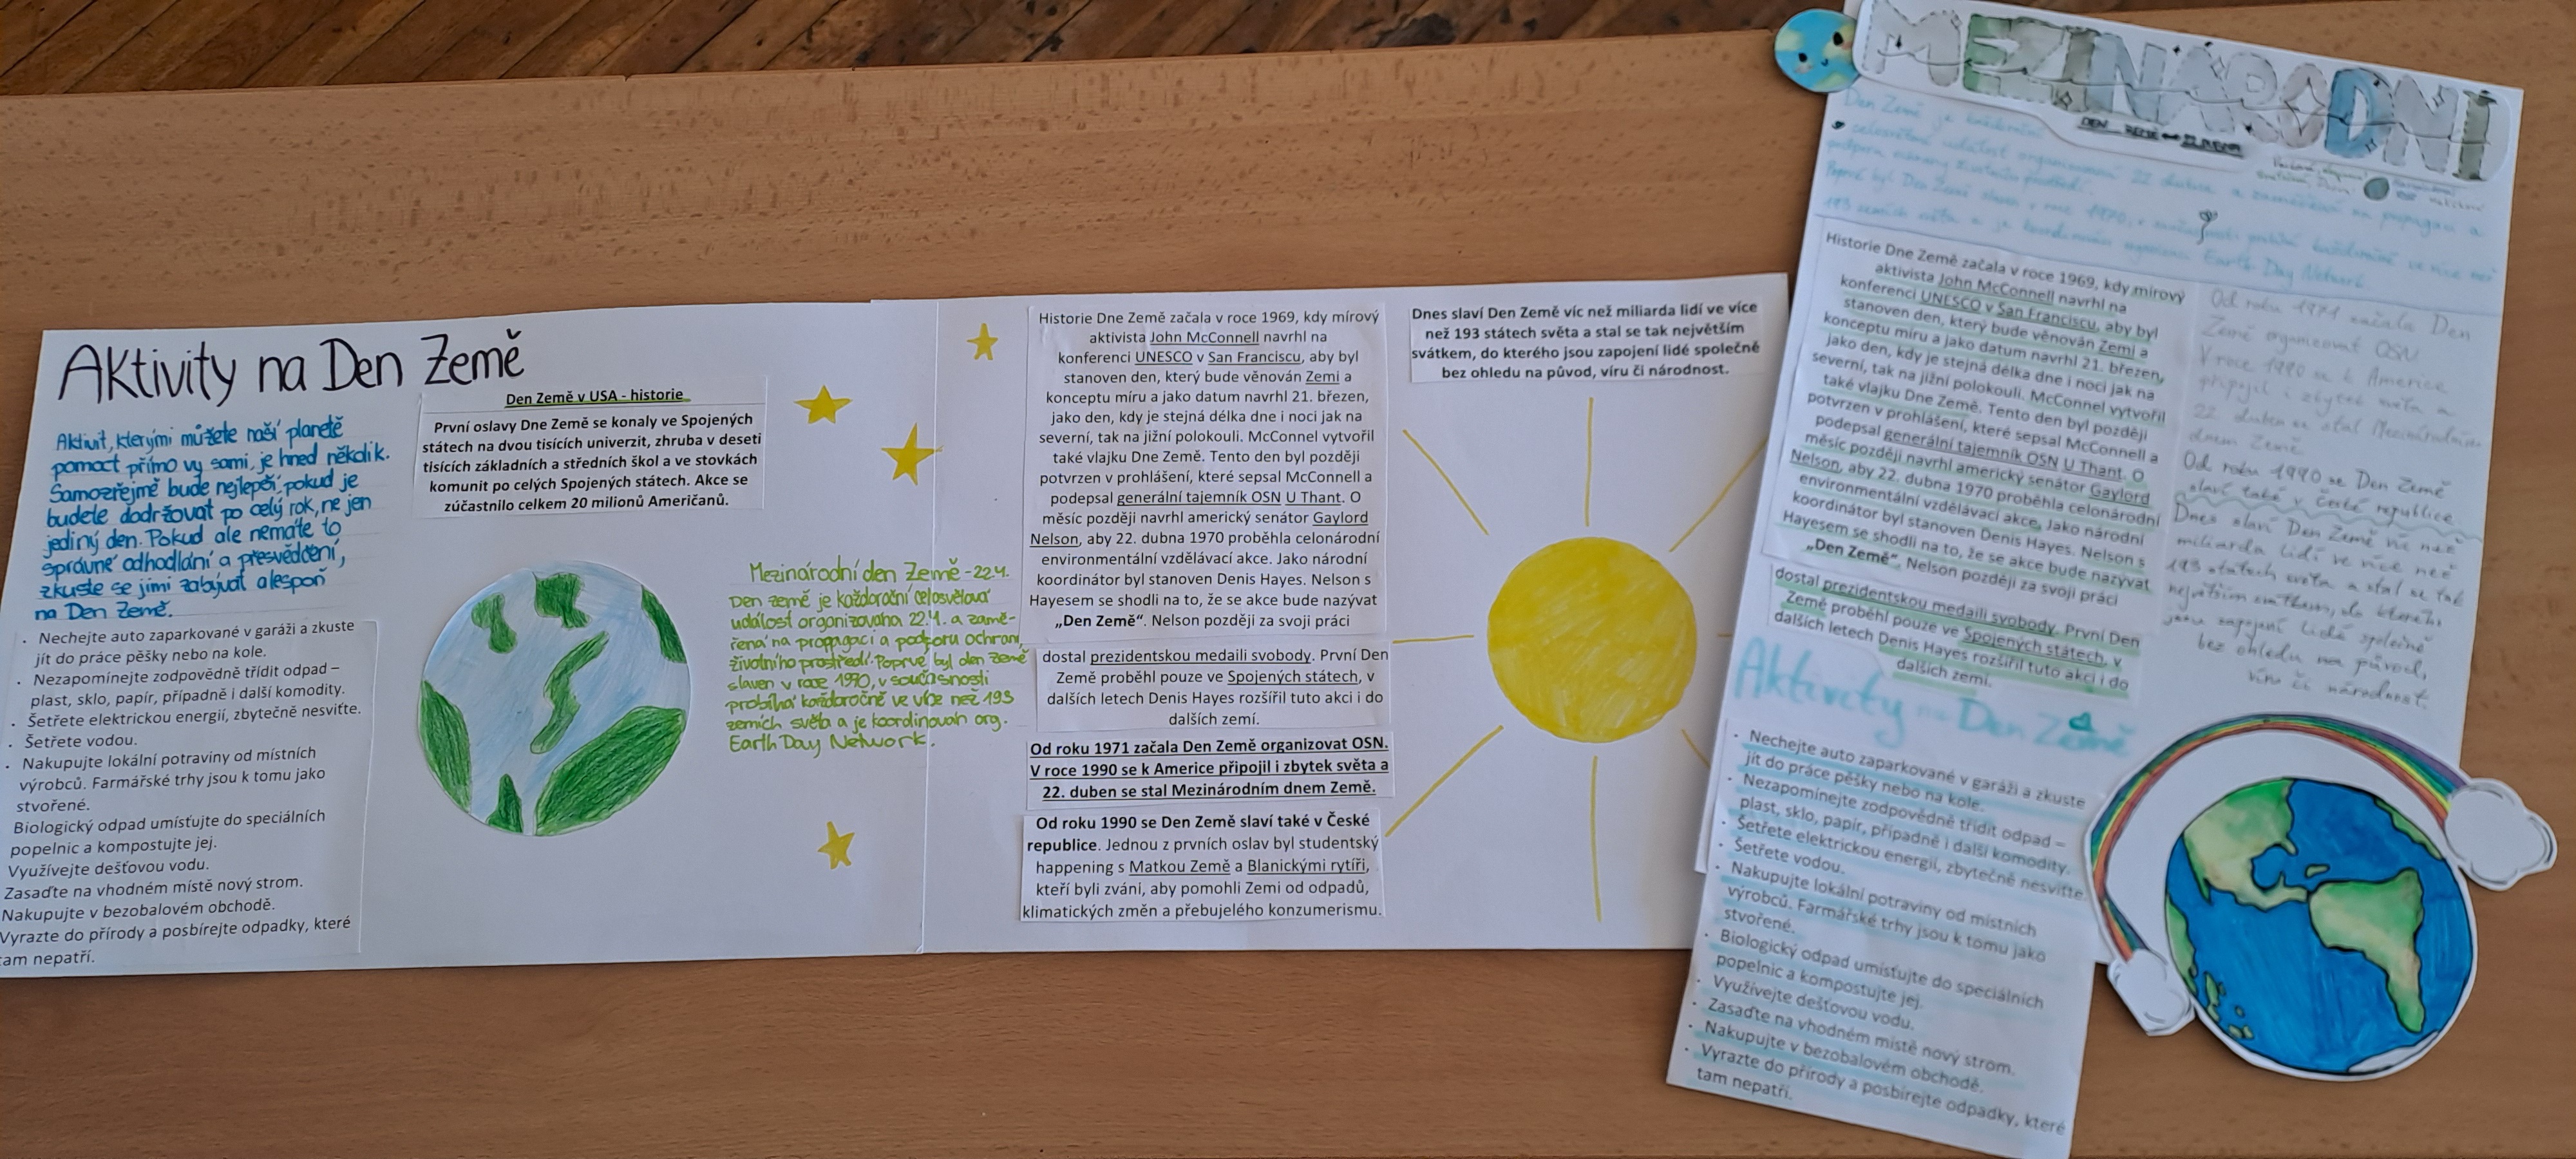 Aktivity na Den Země
Aktivit, kterými můžete naší planetě
pomoct přímo vy sami, je hned několik.
Samozřejmě bude nejlepší, pokud je
budete dodržovat po celý rok, ne jen
jediný den. Pokud ale nemáte to
správné odhodlání a přesvědčení,
zkuste se jimi zabývat alespoň
na Den Země.
· Nechejte auto zaparkované v garáži a zkuste
jít do práce pěšky nebo na kole.
· Nezapomínejte zodpovědně třídit odpad –
plast, sklo, papír, případně i další komodity.
· Šetřete elektrickou energií, zbytečně nesviťte.
· Šetřete vodou.
· Nakupujte lokální potraviny od místních
výrobců. Farmářské trhy jsou k tomu jako
stvořené.
Biologický odpad umísťujte do speciálních
popelnic a kompostujte jej.
Využívejte dešťovou vodu.
Zasaďte na vhodném místě nový strom.
Nakupujte v bezobalovém obchodě.
Vyrazte do přírody a posbírejte odpadky, které
tam nepatří.
Den Země v USA - historie
První oslavy Dne Země se konaly ve Spojených
státech na dvou tisících univerzit, zhruba v deseti
tisících základních a středních škol a ve stovkách
komunit po celých Spojených státech. Akce se
zúčastnilo celkem 20 milionů Američanů.
Mezinárodní den Země - 22.4.
Den země je každoroční celosvětová
událost organizovaná 22.4. a zamě-
řená na propagaci a podporu ochrany
životního prostředí. Poprvé byl den země
slaven v roce 1970, v současnosti
probíhá každoročně ve více než 193
zemích světa a je koordinován org.
Earth Day Network.
Historie Dne Země začala v roce 1969, kdy mírový
aktivista John McConnell navrhl na
konferenci UNESCO v San Franciscu, aby byl
stanoven den, který bude věnován Zemi a
konceptu míru a jako datum navrhl 21. březen,
jako den, kdy je stejná délka dne i noci jak na
severní, tak na jižní polokouli. McConnel vytvořil
také vlajku Dne Země. Tento den byl později
potvrzen v prohlášení, které sepsal McConnell a
podepsal generální tajemník OSN U Thant. O
měsíc později navrhl americký senátor Gaylord
Nelson, aby 22. dubna 1970 proběhla celonárodní
environmentální vzdělávací akce. Jako národní
koordinátor byl stanoven Denis Hayes. Nelson s
Hayesem se shodli na to, že se akce bude nazývat
„Den Země“. Nelson později za svoji práci
dostal prezidentskou medaili svobody. První Den
Země proběhl pouze ve Spojených státech, v
dalších letech Denis Hayes rozšířil tuto akci i do
dalších zemí.
Od roku 1971 začala Den Země organizovat OSN.
V roce 1990 se k Americe připojil i zbytek světa a
22. duben se stal Mezinárodním dnem Země.
Od roku 1990 se Den Země slaví také v České
republice. Jednou z prvních oslav byl studentský
happening s Matkou Země a Blanickými rytíři,
kteří byli zváni, aby pomohli Zemi od odpadů,
klimatických změn a přebujelého konzumerismu.
Dnes slaví Den Země víc než miliarda lidí ve více
než 193 státech světa a stal se tak největším
svátkem, do kterého jsou zapojení lidé společně
bez ohledu na původ, víru či národnost.
MEZINÁRODNÍ
DEN ZEMĚ
Den Země je každoroční
celosvětová událost organizovaná 22 dubna a zaměřená na propagaci a
podporu ochrany životního prostředí.
Poprvé byl Den Země slaven v roce 1970, v současnosti probíhá každoročně ve více než
193 zemích světa a je koordinován organizací Earth Day Network.
Historie Dne Země začala v roce 1969, kdy mírový
aktivista John McConnell navrhl na
konferenci UNESCO v San Franciscu, aby byl
stanoven den, který bude věnován Zemi a
konceptu míru a jako datum navrhl 21. březen,
jako den, kdy je stejná délka dne i noci jak na
severní, tak na jižní polokouli. McConnel vytvořil
také vlajku Dne Země. Tento den byl později
potvrzen v prohlášení, které sepsal McConnell a
podepsal generální tajemník OSN U Thant. O
měsíc později navrhl americký senátor Gaylord
Nelson, aby 22. dubna 1970 proběhla celonárodní
environmentální vzdělávací akce. Jako národní
koordinátor byl stanoven Denis Hayes. Nelson s
Hayesem se shodli na to, že se akce bude nazývat
„Den Země“. Nelson později za svoji práci
dostal prezidentskou medaili svobody. První Den
Země proběhl pouze ve Spojených státech, v
dalších letech Denis Hayes rozšířil tuto akci i do
dalších zemí.
Od roku 1971 začala Den
Země organizovat OSN
V roce 1990 se k Americe
připojil i zbytek světa a
22 duben se stal Mezinárodním
dnem Země
Od roku 1990 se Den Země
slaví také v České republice
Dnes slaví Den Země víc než
miliarda lidí ve více než
193 státech světa a stal se tak
největším svátkem, do kterého
jsou zapojení lidé společně
bez ohledu na původ,
víru či národnost.
Aktivity na Den Země
· Nechejte auto zaparkované v garáži a zkuste
jít do práce pěšky nebo na kole.
· Nezapomínejte zodpovědně třídit odpad –
plast, sklo, papír, případně i další komodity.
· Šetřete elektrickou energií, zbytečně nesviťte.
· Šetřete vodou.
· Nakupujte lokální potraviny od místních
výrobců. Farmářské trhy jsou k tomu jako
stvořené.
· Biologický odpad umísťujte do speciálních
popelnic a kompostujte jej.
· Využívejte dešťovou vodu.
· Zasaďte na vhodném místě nový strom.
· Nakupujte v bezobalovém obchodě.
· Vyrazte do přírody a posbírejte odpadky, které
tam nepatří.